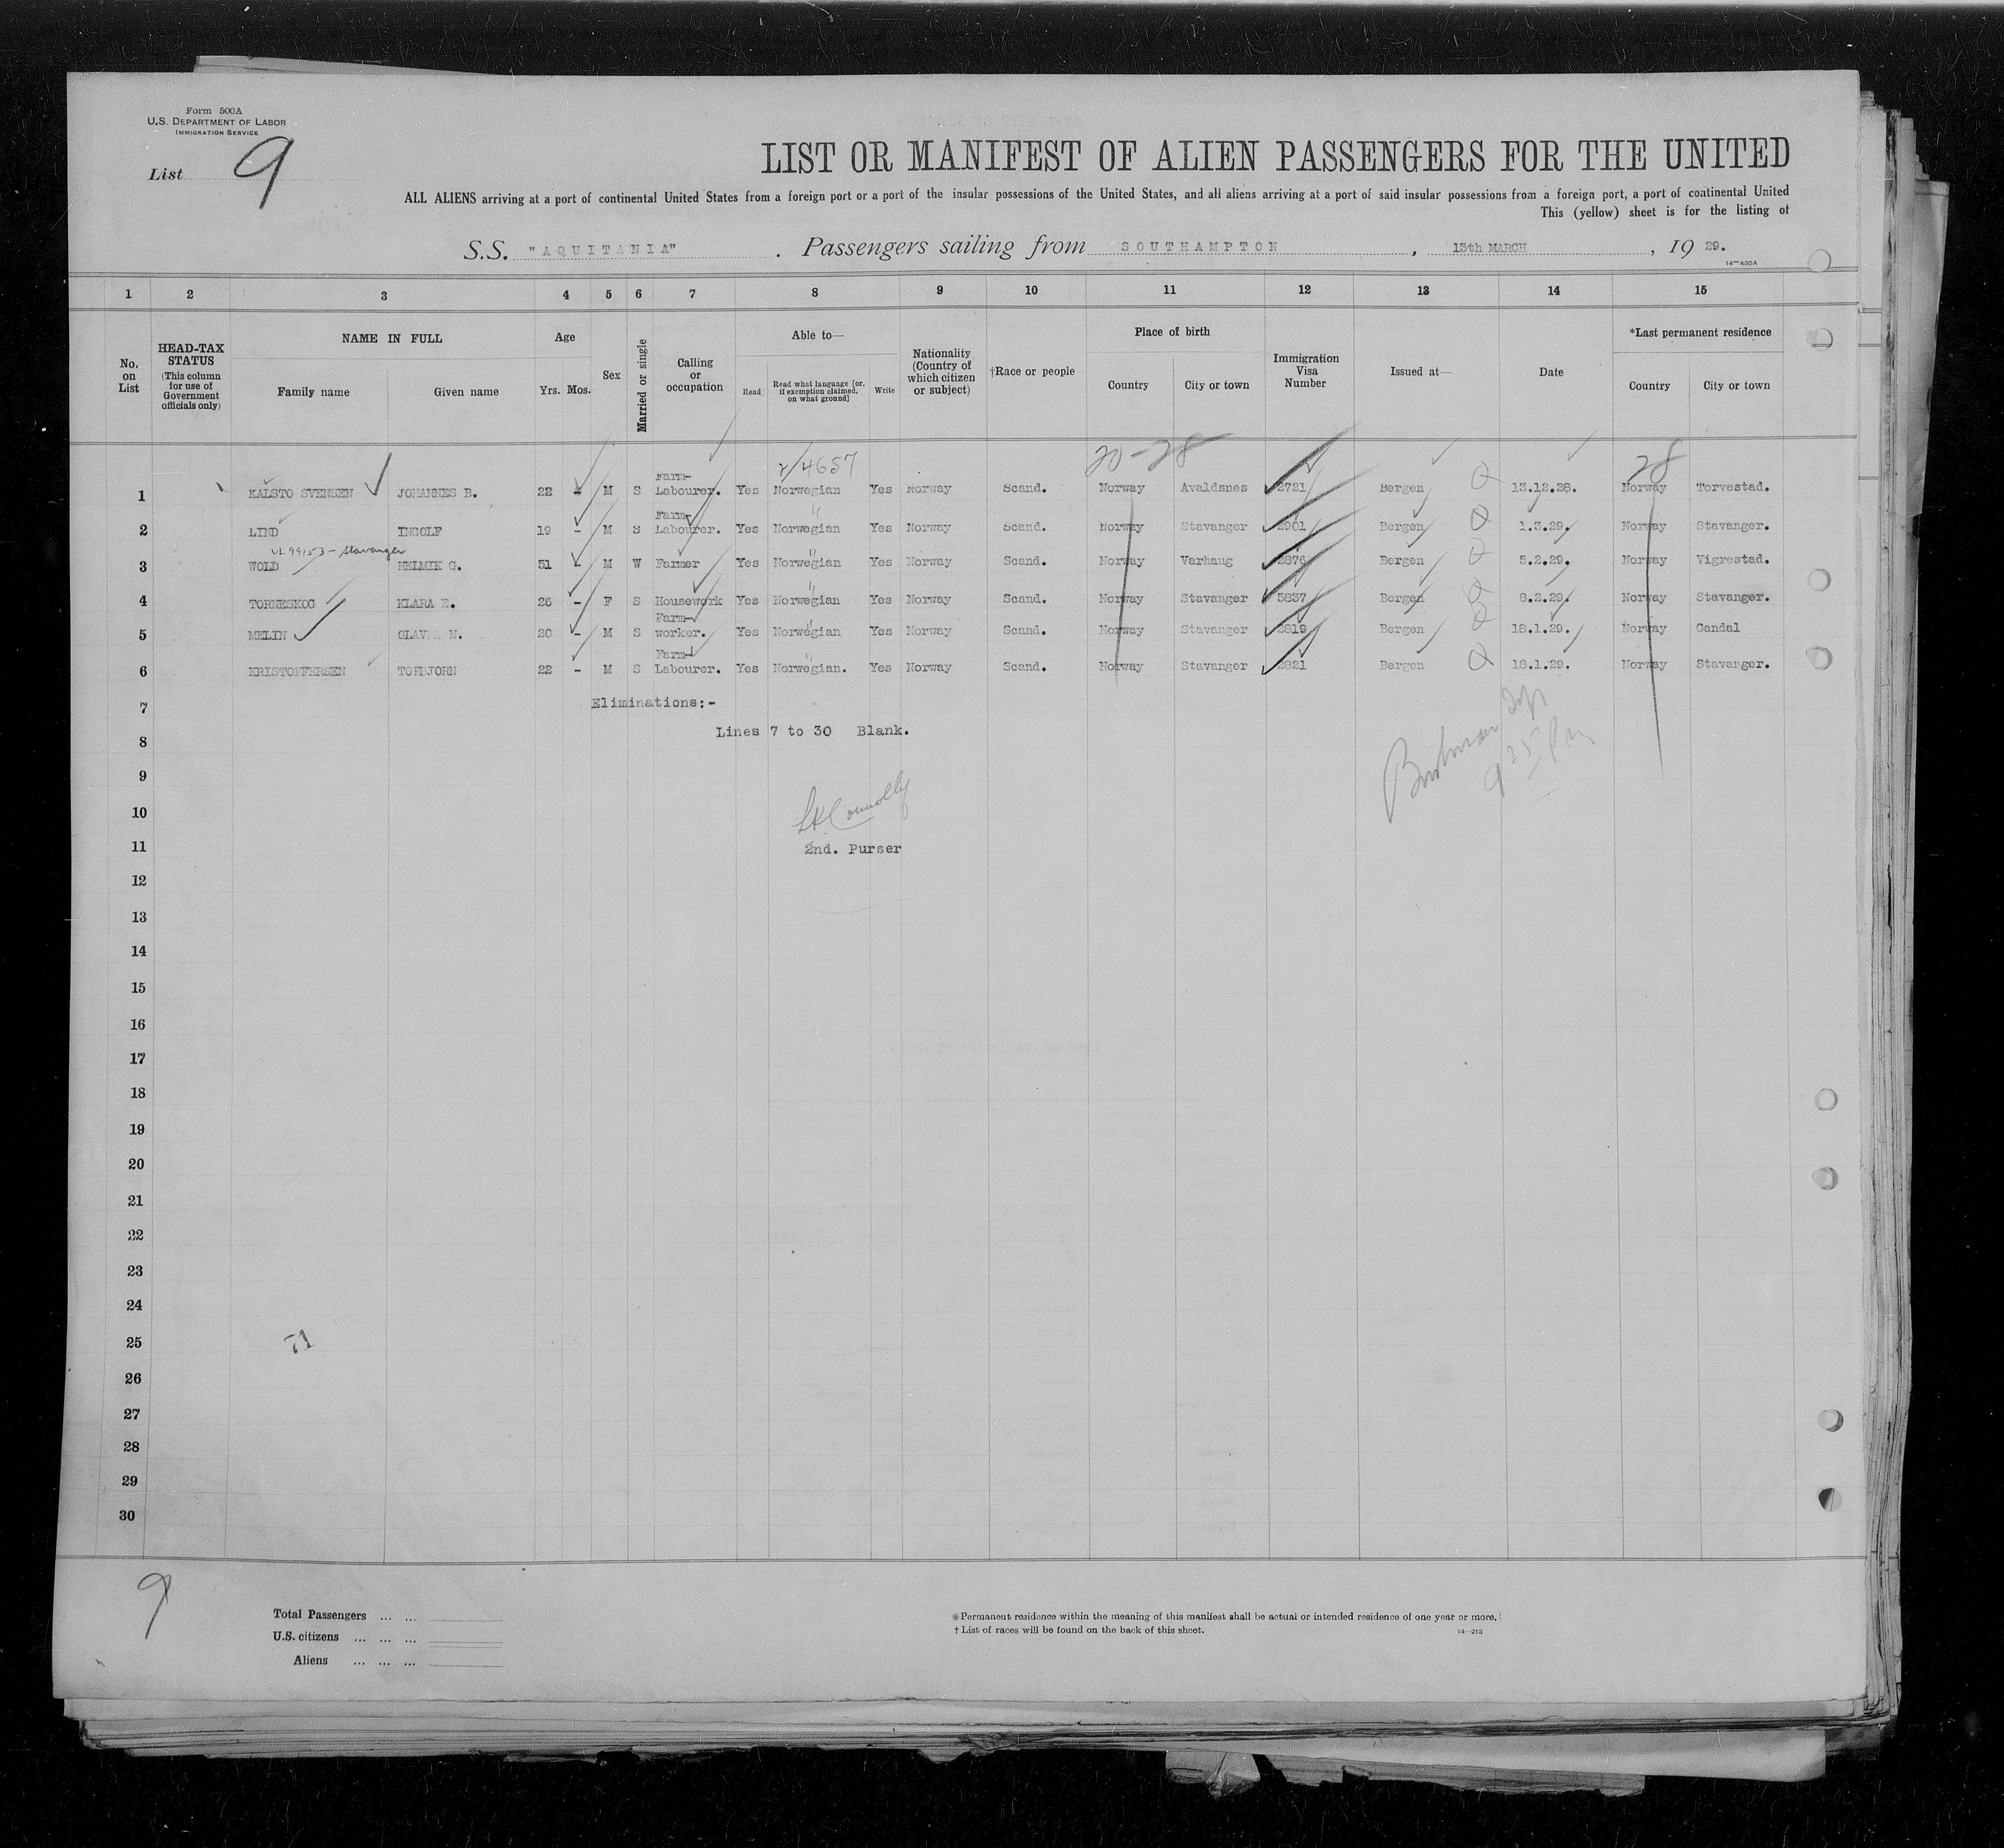 Form 500A
U.S. DEPARTMENT OF LABOR
IMMIGRATION SERVICE
List 9
LIST OR MANIFEST OF ALIEN PASSENGERS FOR THE UNITED
ALL ALIENS arriving at a port of continental United States from a foreign port or a port of the insular possessions of the United States, and all aliens arriving at a port of said insular possessions from a foreign port, a port of continental United
This (yellow) sheet is for the listing of
S.S. "AQUITANIA" . Passengers sailing from SOUTHAMPTON , 13th MARCH , 19 29.
14—430A
1 2 3 4 5 6 7 8 9 10 11 12 13 14 15
No. on List
HEAD-TAX STATUS (This column for use of Government officials only)
NAME IN FULL
Family name Given name
Age
Yrs. Mos.
Sex
Married or single
Calling or occupation
Able to—
Read
Read what language [or, if exemption claimed, on what ground]
Write
Nationality (Country of which citizen or subject)
†Race or people
Place of birth
Country City or town
Immigration Visa Number
Issued at—
Date
*Last permanent residence
Country City or town
4657 20-28 28
1 KALSTO SVENSEN JOHANNES B. 22 - M S Farm-Labourer. Yes Norwegian Yes Norway Scand. Norway Avaldsnes 2721 Bergen 13.12.28. Norway Torvestad.
2 LIND INGOLF 19 - M S Farm-Labourer. Yes Norwegian Yes Norway Scand. Norway Stavanger 2901 Bergen 1.3.29. Norway Stavanger.
VL 99153 - Stavanger
3 WOLD HELMIK G. 51 - M W Farmer Yes Norwegian Yes Norway Scand. Norway Varhaug 2876 Bergen 5.2.29. Norway Vigrestad.
4 TORNESKOG KLARA E. 26 - F S Housework Yes Norwegian Yes Norway Scand. Norway Stavanger 5837 Bergen 8.2.29. Norway Stavanger.
5 MELIN OLAV N. 20 - M S Farm-worker. Yes Norwegian Yes Norway Scand. Norway Stavanger 2819 Bergen 18.1.29. Norway Gandal
6 KRISTOFFERSEN TORBJORN 22 - M S Farm-Labourer. Yes Norwegian. Yes Norway Scand. Norway Stavanger 2821 Bergen 18.1.29. Norway Stavanger.
7 Eliminations:-
8 Lines 7 to 30 Blank.
9
10 Connolly
11 2nd. Purser
12
13
14
15
16
17
18
19
20
21
22
23
24
25 71
26
27
28
29
30
9
Total Passengers ... ...
U.S. citizens ... ... ...
Aliens ... ... ...
*Permanent residence within the meaning of this manifest shall be actual or intended residence of one year or more.
† List of races will be found on the back of this sheet.
14—213